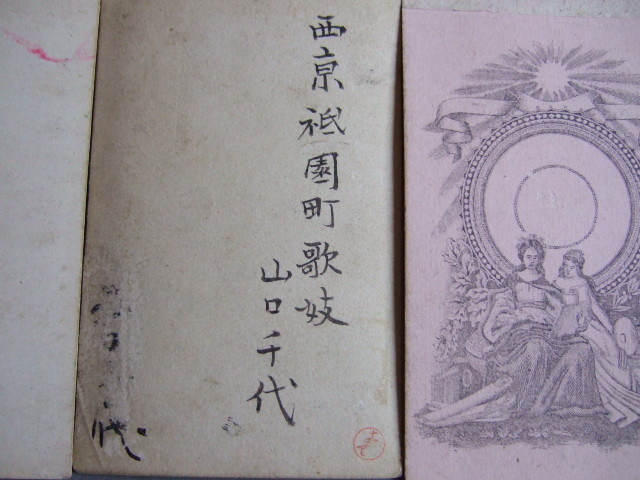 西京祇園町歌妓
山口千代